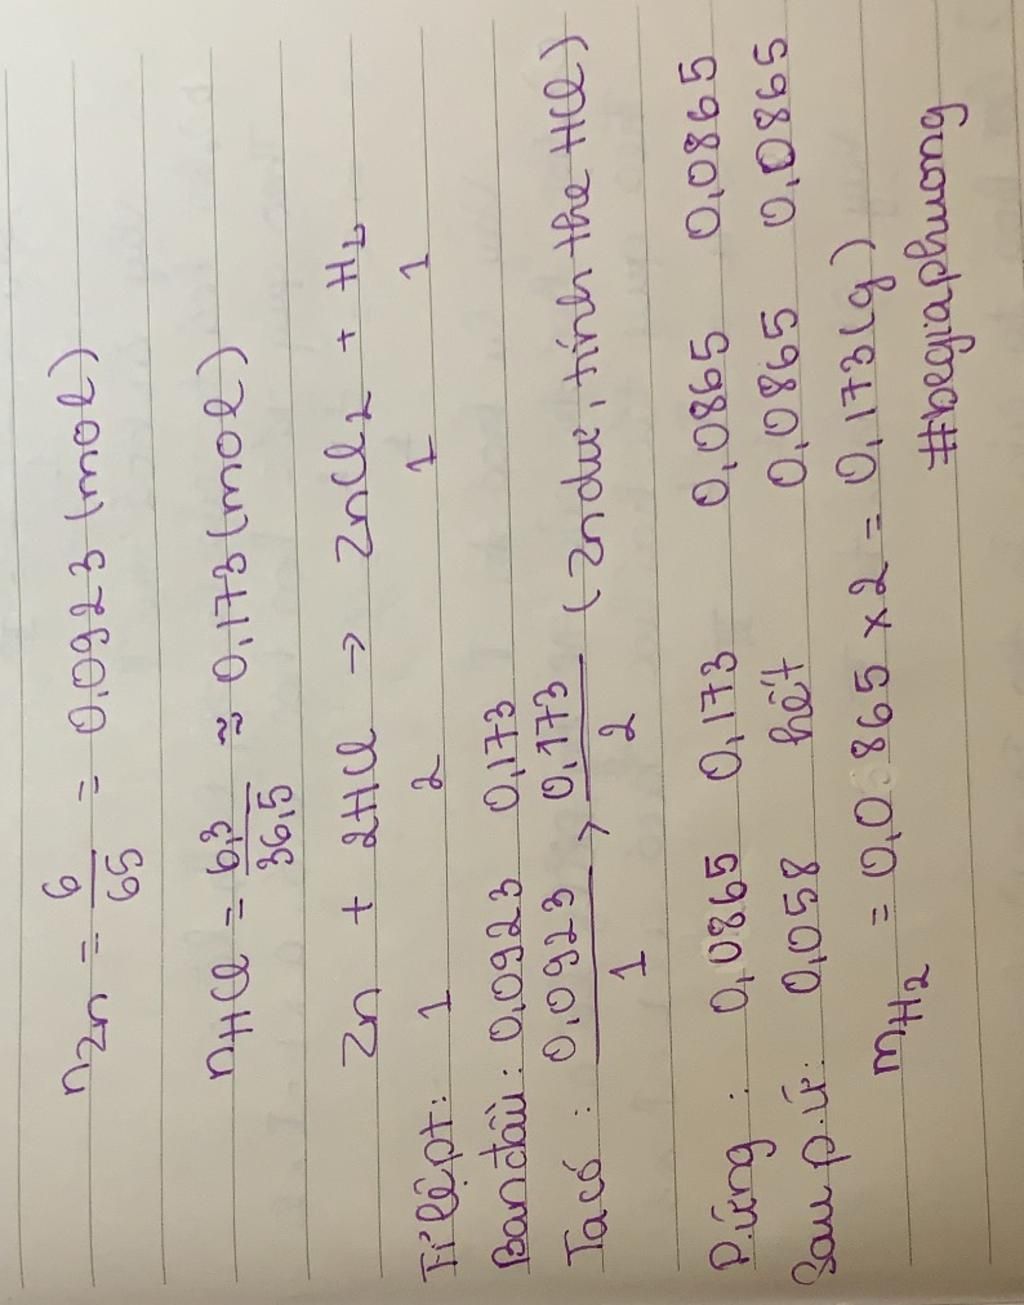 nZn = 6/65 = 0,0923 (mol)
nHCl = 6,3/36,5 ≈ 0,173 (mol)
Zn + 2HCl → ZnCl₂ + H₂
Tỉ lệ pt: 1 2 1 1
Ban đầu: 0,0923 0,173
Ta có: 0,0923/1 > 0,173/2 (Zn dư, tính the HCl)
P.ứng: 0,0865 0,173 0,0865 0,0865
Sau p.ứ: 0,058 hết 0,0865 0,0865
mH₂ = 0,0865 x 2 = 0,173 (g)